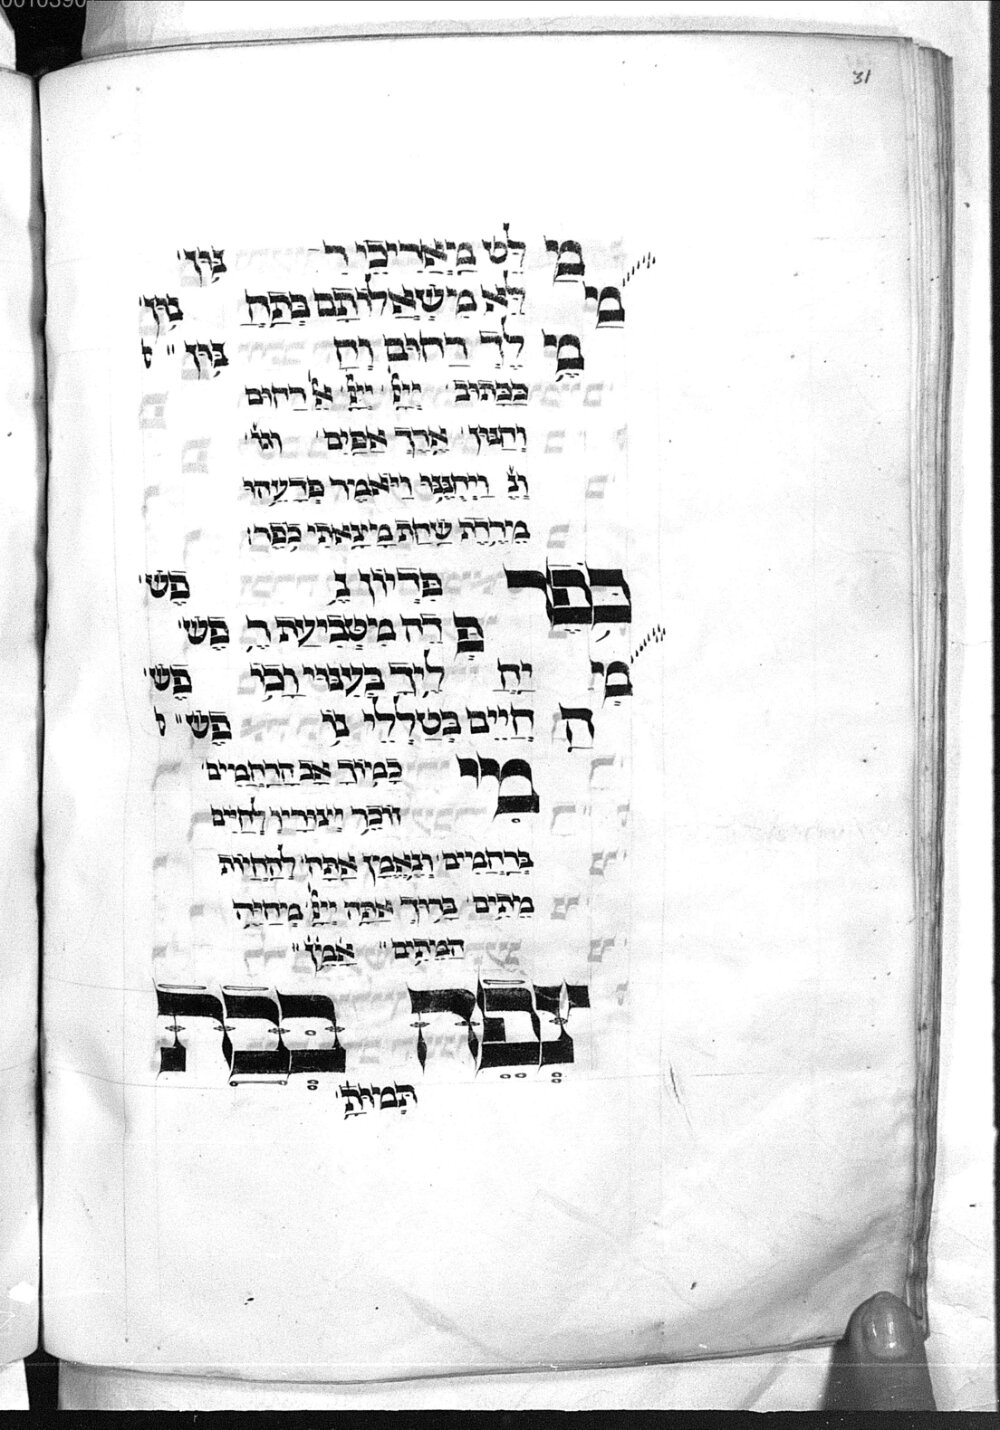 0010390
31
מַ לֵּט מַאֲרִיבֵי רִ נּוּךְ
מִ לֵּא מִשְׁאֲלוֹתָם כְּתַחֲ נוּךְ
מֶ לֶךְ רַחוּם וְחַ נּוּן ״ ס
ככתוב ייי ייי אל רחום
וחנון ארך אפים וגו׳
ונ׳ ויחננו ויאמר פדעהו
מרדת שחת מצאתי כפר
כפר פדיון נ פש׳
פ דה מטביעת ר פש׳
מי יח ליך בענני וכו פש׳
ה חיים בטללי נו פש׳ ״ ס
מי כמוך אב הרחמים
זוכר יצוריו לחיים
ברחמים ונאמן אתה להחיות
מתים ברוך אתה ייי מחיה
המתים ״ אמן ״
צפה בבת
תמותה